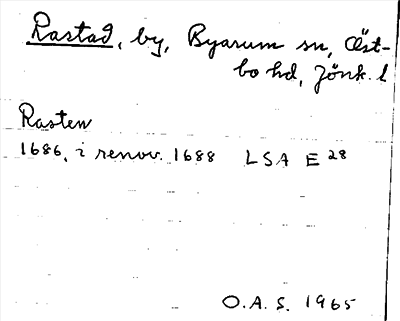 Rastad, by, Byarum sn, Öst-
bo hd, Jönk. l
Rasten
1686, i renov. 1688 LSA E 28
O.A.S. 1965